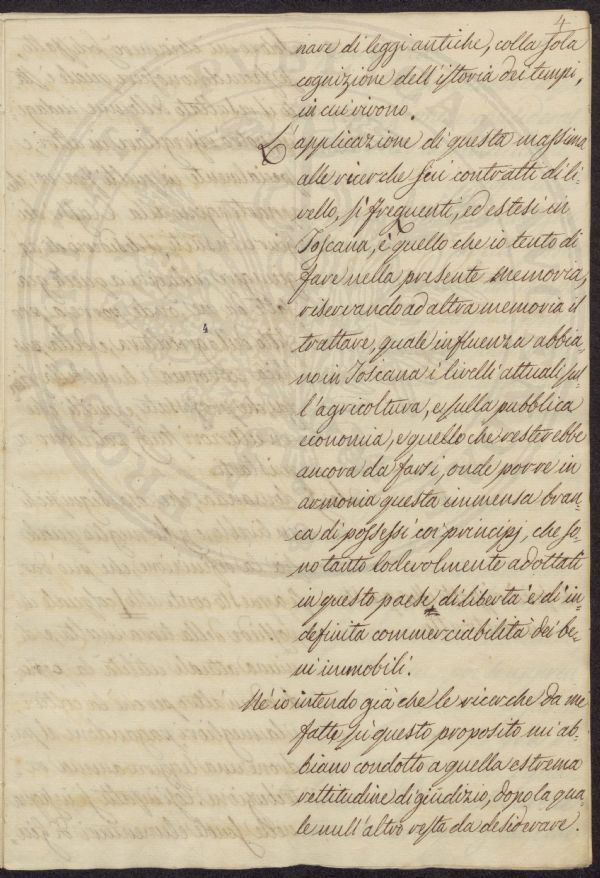 4
nare di leggi antiche, colla sola
cognizione dell'istoria dei tempi,
in cui vivono.
L'applicazione di questa massima
alle ricerche sui contratti di li-
vello, sì frequenti, ed estesi in
Toscana, è quello che io tento di
fare nella presente memoria,
riservando ad altra memoria il
trattare, quale influenza abbia-
no in Toscana i livelli attuali sul-
l'agricoltura, e sulla pubblica
economia, e quello che resterebbe
ancora da farsi, onde porre in
armonia questa immensa bran-
ca di possessi coi principj, che so-
no tanto lodevolmente adottati
in questo paese di libertà e di in-
definita commerciabilità dei be-
ni immobili.
Nè io intendo già che le ricerche da me
fatte su questo proposito mi ab-
biano condotto a quella estrema
rettitudine di giudizio, dopo la qua-
le null'altro resta da desiderare.
4